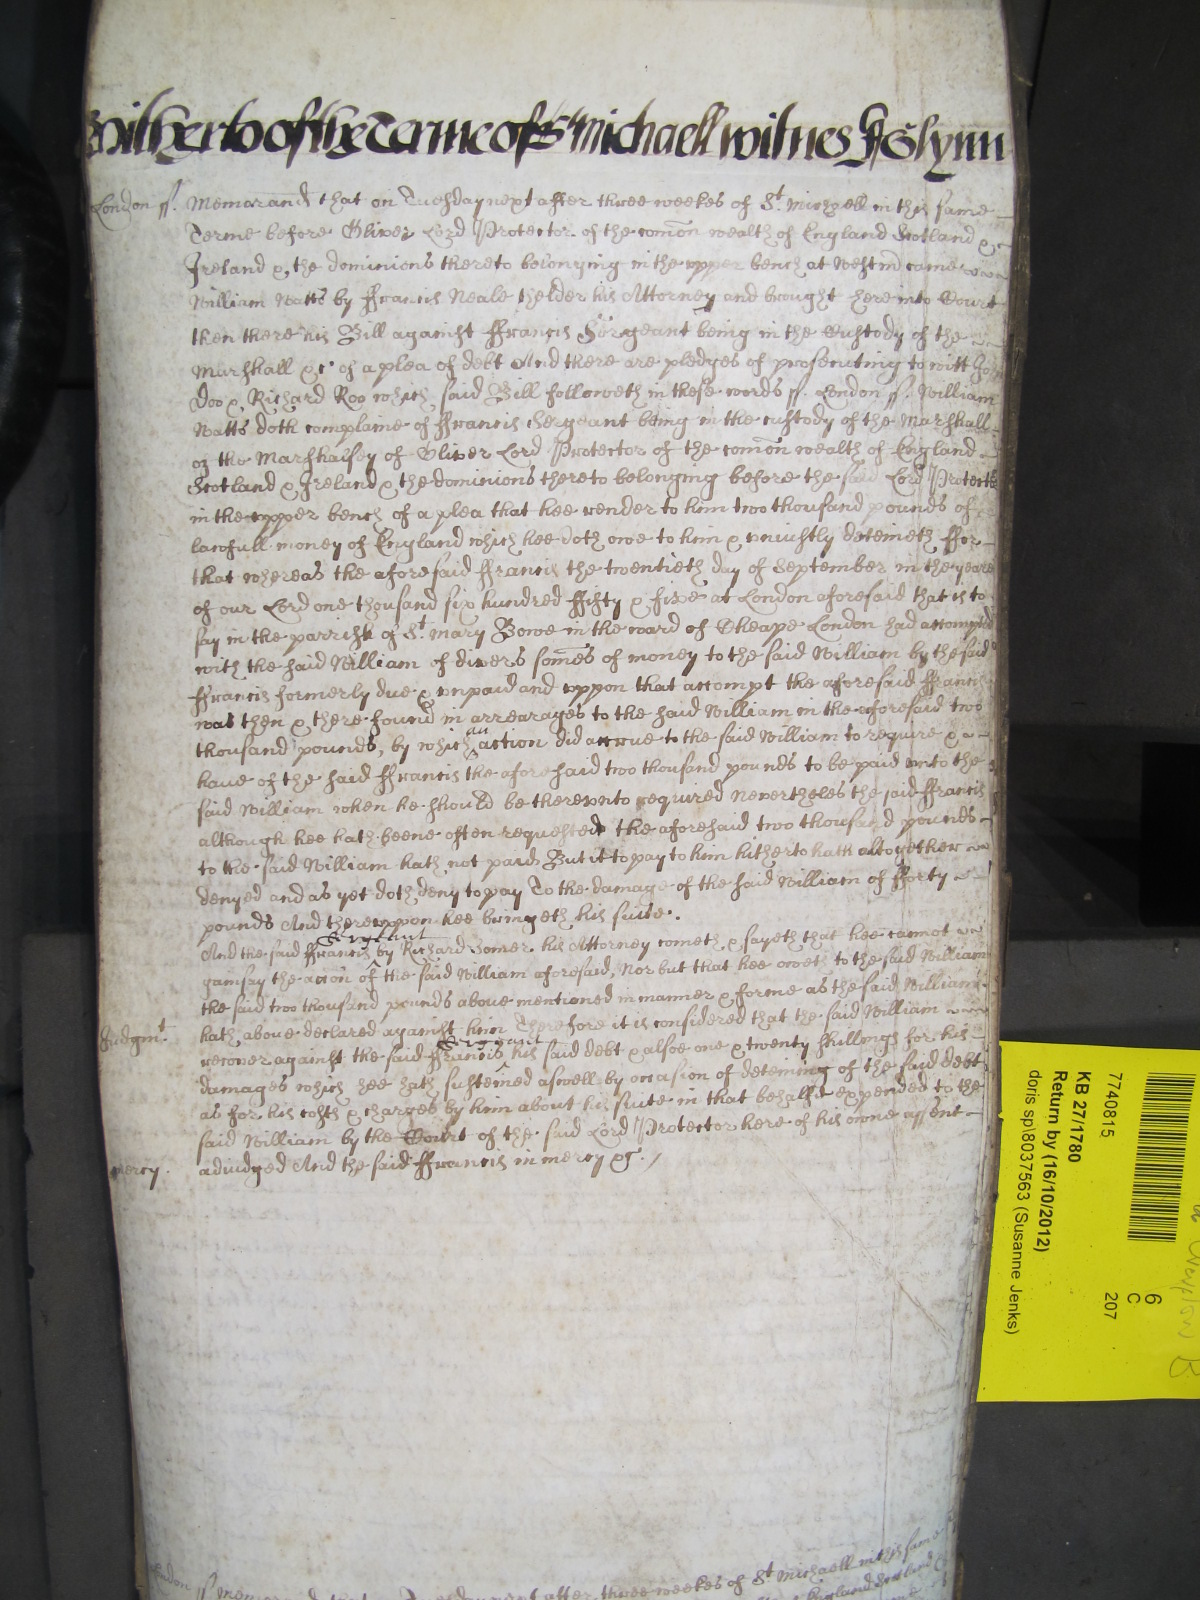 Hitherto of the Terme of St Michaell witnes J Glynn
London ss. Memorand that on Tuesday next after three weekes of St. Michaell in this same
Terme before Oliver Lord Protector of the comon wealth of England Scotland &
Ireland & the dominions thereto belonging in the upper bench at Westm came
William Watts by ffrancis Neale thelder his Attorney and brought here into Court
then there his Bill against ffrancis Sergeant being in the Custody of the
Marshall &c of a plea of debt And there are pledges of prosecuting to witt John
Doo & Richard Roo which said Bill followeth in these words ss. London ss. William
Watts doth complaine of ffrancis Sergeant being in the custody of the Marshall
of the Marshalsey of Oliver Lord Protector of the comon wealth of England
Scotland & Ireland & the dominions thereto belonging before the said Lord Protector
in the upper bench of a plea that hee render to him two thousand pounds of
lawfull money of England which hee doth owe to him & uniustly deteineth ffor
that whereas the aforesaid ffrancis the twentieth day of September in the yeare
of our Lord one thousand six hundred ffifty & five at London aforesaid that is to
say in the parrish of St. Mary Bowe in the ward of Cheape London had accompted
with the said William of divers somes of money to the said William by the said
ffrancis formerly due & unpaid and uppon that accompt the aforesaid ffrancis
was then & there found in arrearages to the said William in the aforesaid two
thousand pounds, by which an action did accrue to the said William to require &
have of the said ffrancis the aforesaid two thousand pounds to be paid unto the
said William when he should be thereunto required Nevertheles the said ffrancis
although hee hath beene often requested the aforesaid two thousand pounds
to the said William hath not paid But it to pay to him hitherto hath altogether
denyed and as yet doth deny to pay To the damage of the said William of fforty
pounds And thereuppon hee bringeth his suite.
And the said ffrancis Sergeant by Richard Somer his Attorney cometh & sayeth that hee cannot
gainsay the acion of the said William aforesaid, Nor but that hee oweth to the said William
the said two thousand pounds above mentioned in manner & forme as the said William
Judgmt. hath above declared against him Therefore it is considered that the said William
recover against the said ffrancis Sergeant his said debt & alsoe one & twenty shillings for his
damages which hee hath susteined aswell by occasion of deteining of the said debt
as for his costs & charges by him about his suite in that behalfe expended to the
said William by the Court of the said Lord Protector here of his owne assent
mercy. adiudged And the said ffrancis in mercy &c.
London ss Memorand that on Tuesday next after three weekes of St Michaell in this same
England Scotland
7740815
KB 27/1780
Return by (16/10/2012)
doris sp\8037563 (Susanne Jenks)
6
C
207